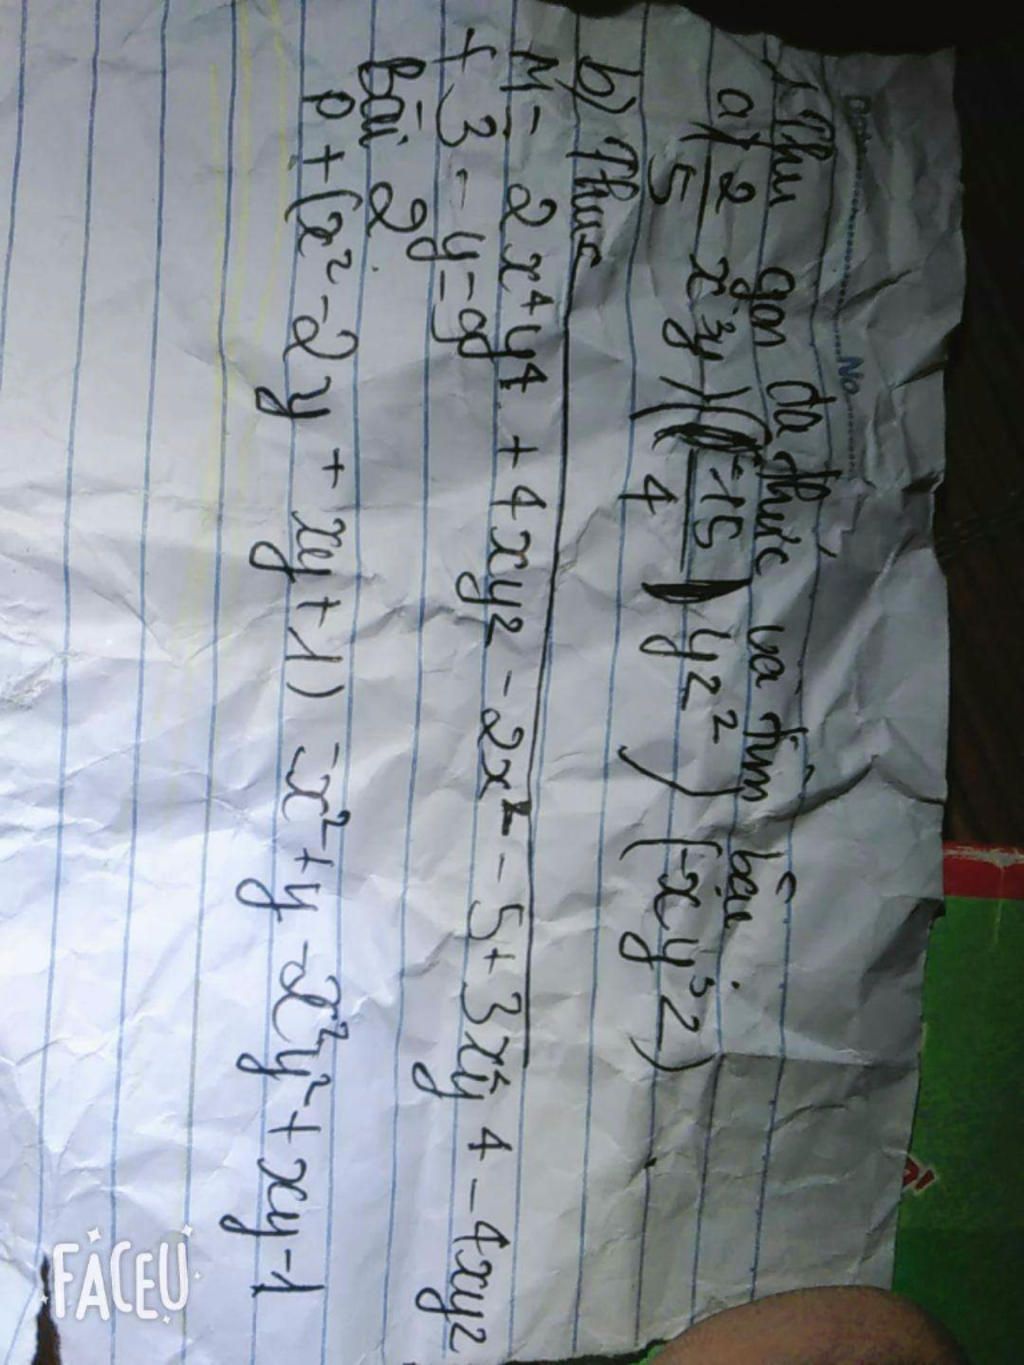 Date No
1 Thu gọn đa thức và tìm bậc
a) (2/5 x³y) (-15/4 yz²) (-xy³z)
b) Thu
M = 2x⁴y⁴ + 4xyz - 2x² - 5 + 3x⁴y⁴ - 4xyz
+ 3 - y⁹
Bài 2
P + (x² - 2y + xy + 1) = x² + y - x²y² + xy - 1
FACEU